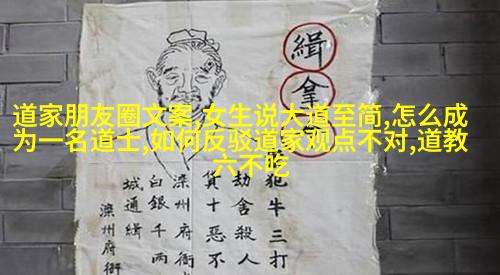 道家朋友圈文案,女生说大道至简,怎么成
为一名道士,如何反驳道家观点不对,道教
六不吃
緝拿
犯牛三打
劫舍殺人
十恶不
滦州府衙
白銀千两
城通緝
滦州府衙